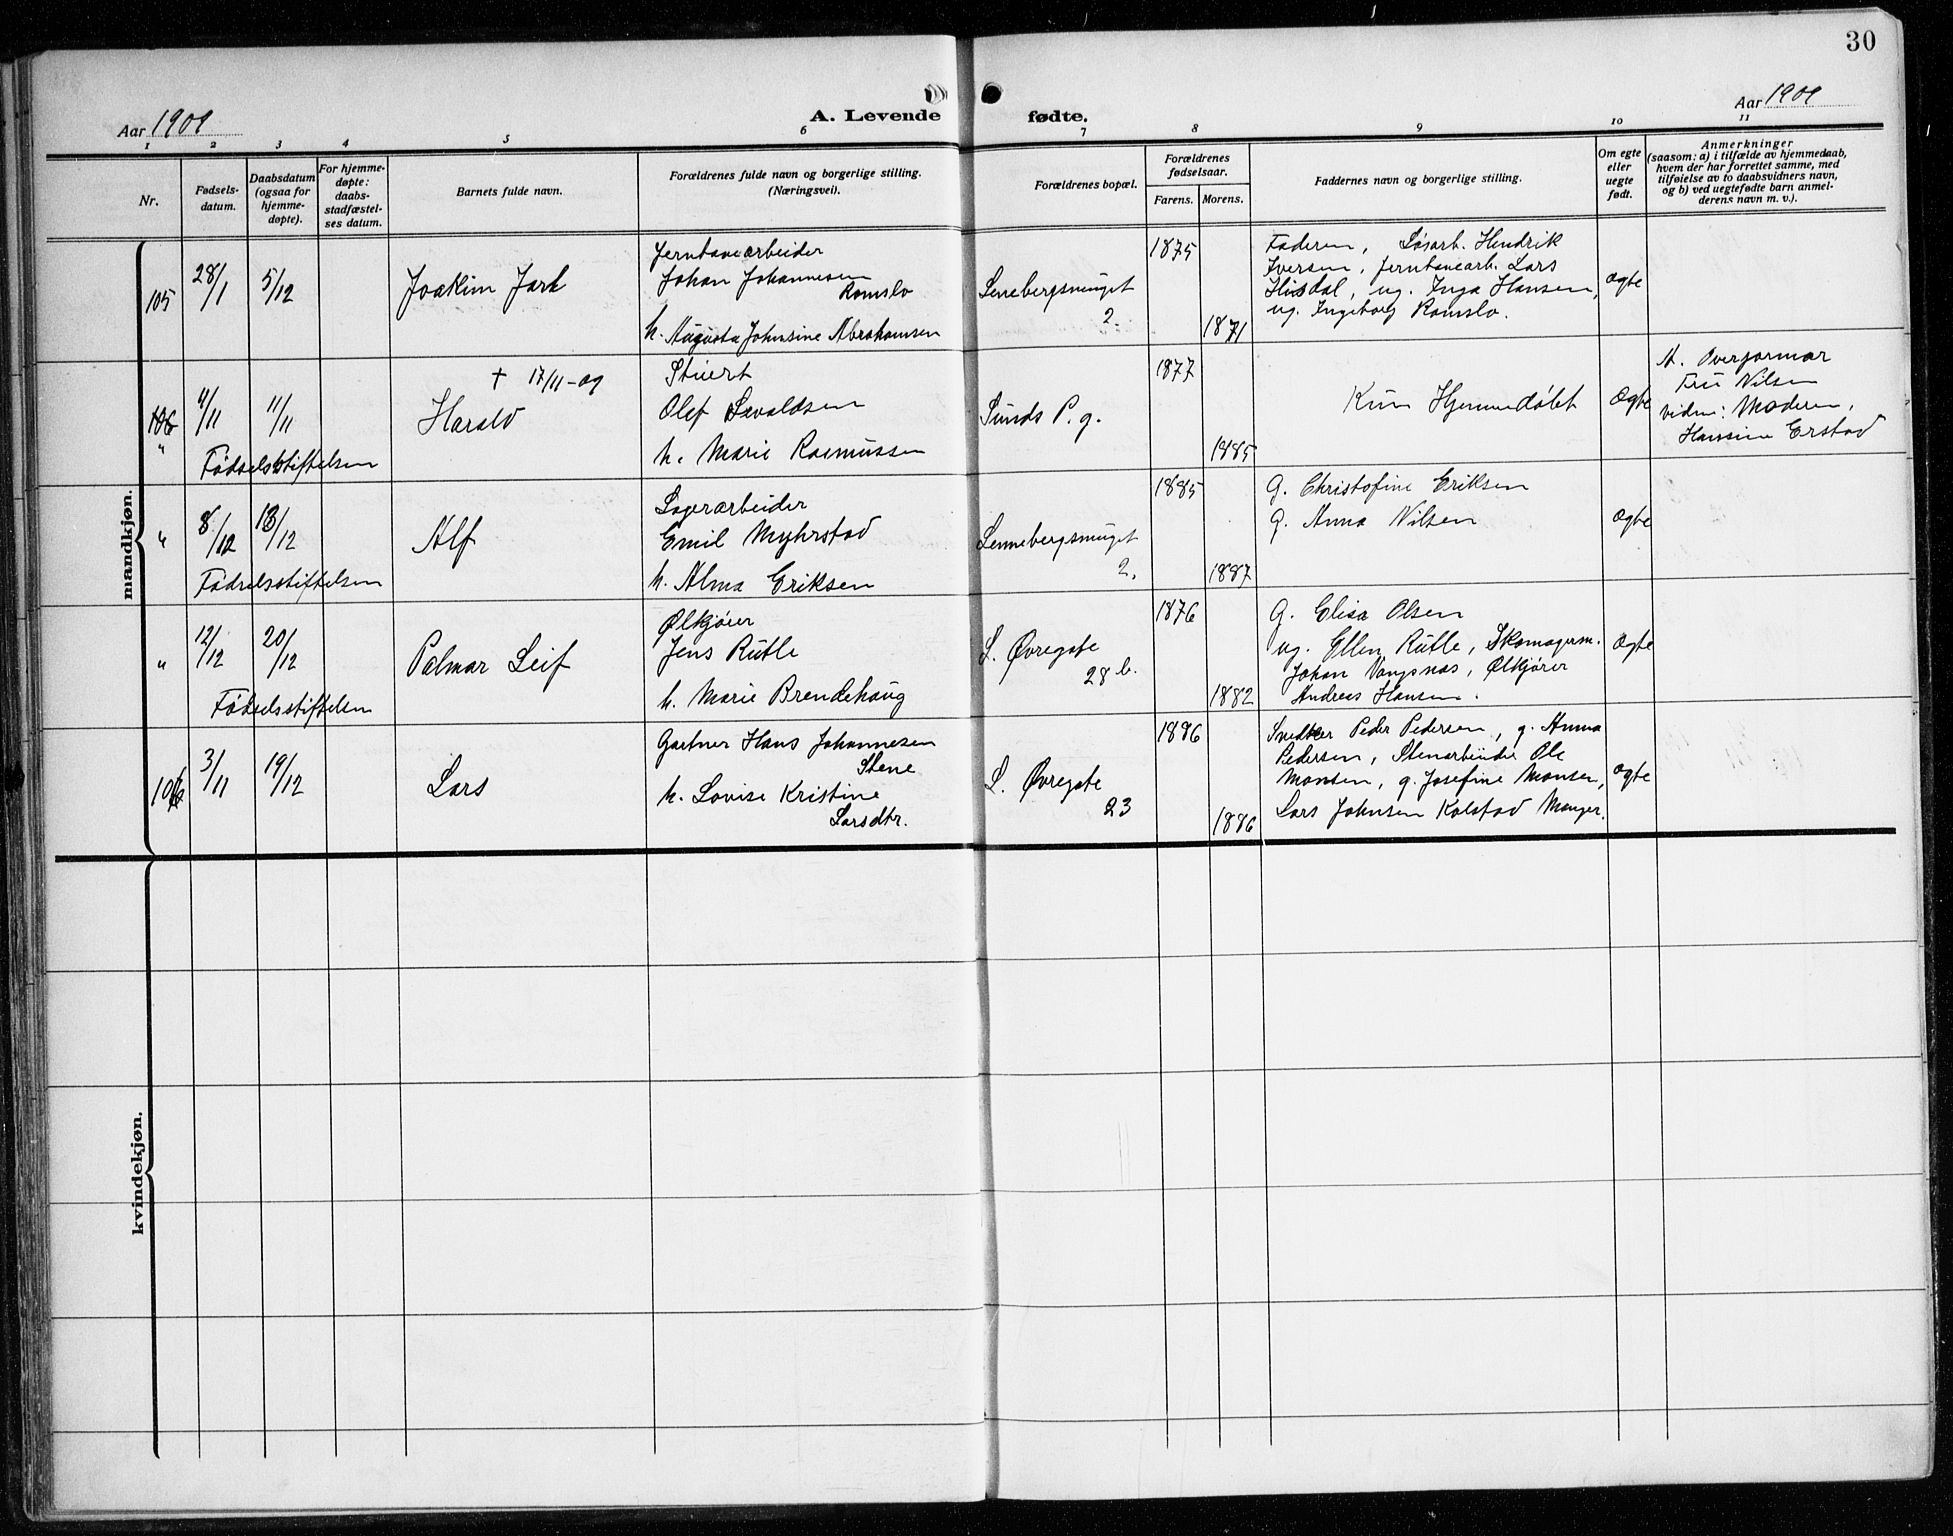 30
Aar 1909
A. Levende
fødte.
Aar 1909
1 2 3 4 5 6 7 8 9 10 11
Nr.
Fødsels-
datum.
Daabsdatum
(ogsaa for
hjemme-
døpte).
For hjemme-
døpte:
daabs-
stadfæstel-
ses datum.
Barnets fulde navn.
Forældrenes fulde navn og borgerlige stilling.
(Næringsvei).
Forældrenes bopæl.
Forældrenes
fødselsaar.
Farens. Morens.
Faddernes navn og borgerlige stilling.
Om egte
eller
uegte
født.
Anmerkninger
(saasom: a) i tilfælde av hjemmedaab,
hvem der har forrettet samme, med
tilføielse av to daabsvidners navn,
og b) ved uegtefødte barn anmel-
derens navn m. v.).
mandkjøn.
105
28/1
5/12
Joakim Jarl
Jerntavearbeider
Johan Johannesen
Romslo
h. Augusta Johnsine Abrahamsen
Lennebergsmuget
2.
1875
1871
Faderen, Løsarb. Hendrik
Iversen, Jerntavearb. Lars
Hisdal, ug. Inga Hansen,
ug. Ingeborg Romslo.
ægte
106
"
4/11
11/11
Fødselsstiftelsen
† 17/11-09
Harald
Stuert
Olaf Sevaldsen
h. Marie Rasmussen
Sunds P. g.
1877
1885
Kun Hjemmedøbt
ægte
A. Overjormor
Fru Nilsen
vidne: Moderen,
Hansine Erstad
"
8/12
13/12
Fødselsstiftelsen
Alf
Lagerarbeider
Emil Myhrstad
h. Alma Eriksen
Lennebergsmuget
2.
1885
1887
G. Christofine Eriksen
G. Anna Nilsen
ægte
"
12/12
20/12
Fødselsstiftelsen
Palmar Leif
Ølkjører
Jens Rutle
h. Marie Brendehaug
L. Øvregate
28 b.
1876
1882
G. Elisa Olsen
ug. Ellen Rutle, Skomagerm.
Johan Vangsnæs, Ølkjører
Andreas Hansen.
ægte
106
3/11
19/12
Lars
Gartner Hans Johannesen
Stene
h. Lovise Kristine
Larsdtr.
L. Øvregate
23
1886
1886
Snedker Peder Pedersen, g. Anna
Pedersen, Stenarbeider Ole
Monsen, g. Josefine Monsen,
Lars Johnsen Kolstad Manger.
ægte
kvindekjøn.